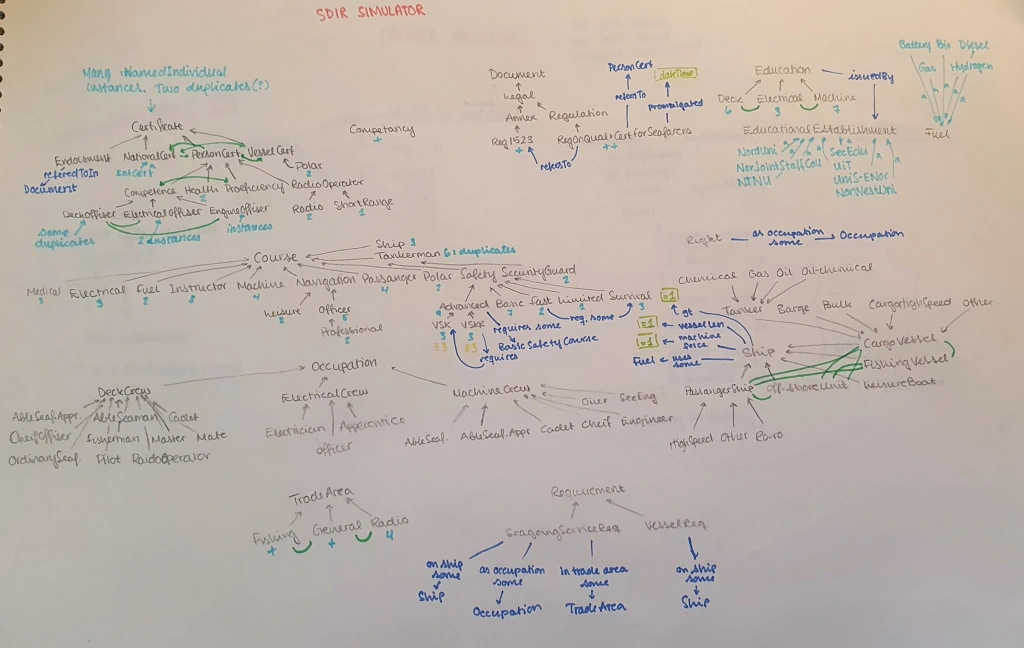 SDIR SIMULATOR
Many :NamedIndividual
instances. Two duplicates(?)
Certificate
Endocument NationalCert PersonCert VesselCert
referredToIn IntCert Polar
Document 2
Competence Health Proficiency RadioOperator
2
DeckOffiser ElectricalOffiser EngineOffiser Radio ShortRange
2 1
some
duplicates
2 instances
instances
Competancy
+
Document
Legal
Annex Regulation
Reg1523 RegOnQual+CertforSeafarers
+ ++
refersTo
PersonCert
refersTo
dateTime
promulgated
Education issuedBy
Deck Electrical Machine
6 3 7
Educational Establishment
NordUni SeeEdu
NorJointStaffCou UiT
NTNU UniS-ENor
NorWestUni
Battery Bio Diesel
Gas Hydrogen
Fuel
Right as occupation some Occupation
Ship 3
Tankerman 6: duplicates
Course
Medical Electrical Fuel Instructor Machine Navigation Passanger Polar Safety SecurityGuard
3 3 2 8 4 4 2 2
Leisure Officer
2 5
Professional
2
Advanced Basic Fast Limited Survival
9 7 2 2 3
VSK VSKR
3 3
ES ES
requires some
reg. some
BasicSafetyCourse
requires
=1 gt
=1 vessel len
=1 machine force
Fuel uses some
Chemical Gas Oil Oil-chemical
Tanker Barge Bulk CargoHighSpeed Other
CargoVessel
Ship
FishingVessel
PassangerShip Off-shoreUnit LeisureBoat
HighSpeed Other Ro-ro
Occupation
DeckCrew
AbleSeaf.Appr. AbleSeaman Cadet
CheifOffiser Fisherman Master Mate
OrdinarySeaf. Pilot RaidoOperator
ElectricalCrew
Electrician Apperentice
officer
MachineCrew
Oiler SeeEng
AbleSeaf. AbleSeaf.Appr Cadet Cheif Engineer
TradeArea
Fishing General Radio
+ + 4
Requirement
SeagoingServiceReq VesselReq
on ship
some
Ship
as occupation
some
Occupation
in trade area
some
TradeArea
on ship
some
Ship